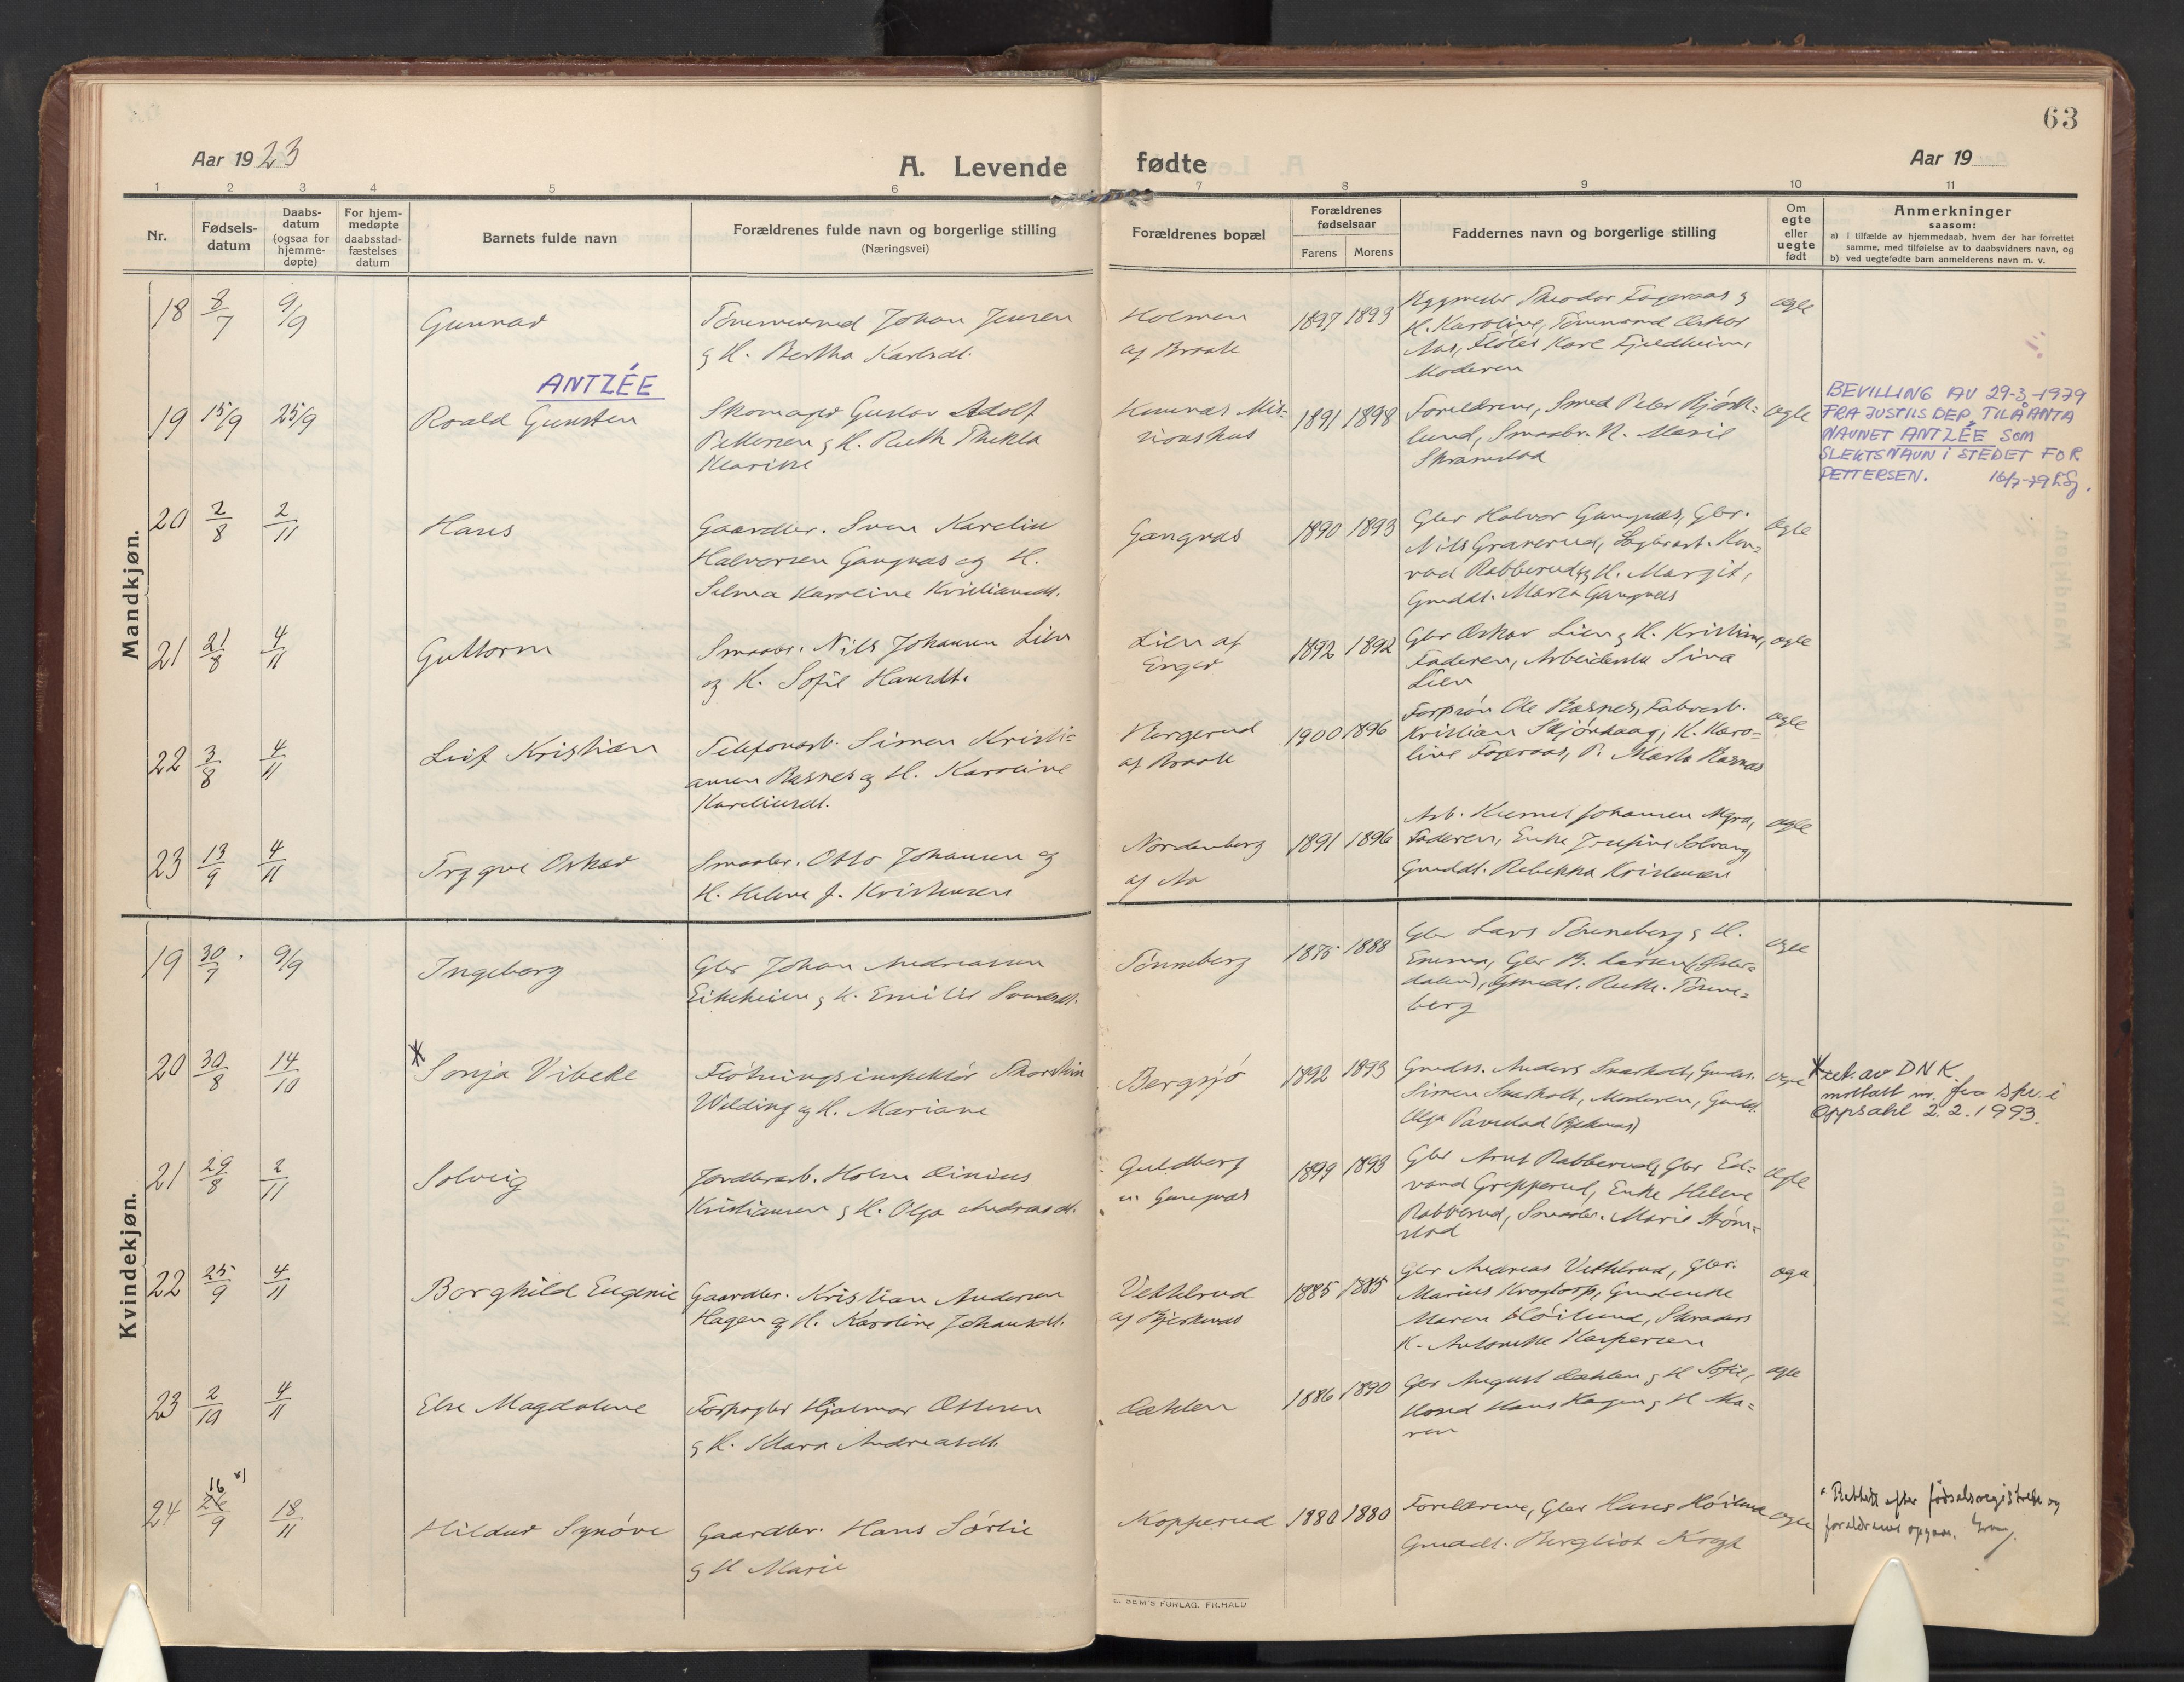 63
Aar 1923
A. Levende fødte
Aar 19
1 2 3 4 5 6 7 8 9 10 11
Nr.
Fødsels-
datum
Daabs-
datum
(ogsaa for
hjemme-
døpte)
For hjem-
medøpte
daabsstad-
fæstelses
datum
Barnets fulde navn
Forældrenes fulde navn og borgerlige stilling
(Næringsvei)
Forældrenes bopæl
Forældrenes
fødselsaar
Farens Morens
Faddernes navn og borgerlige stilling
Om
egte
eller
uegte
født
Anmerkninger
saasom:
a) i tilfælde av hjemmedaab, hvem der har forrettet
samme, med tilføielse av to daabsvidners navn, og
b) ved uegtefødte barn anmelderens navn m. v.
Mandkjøn.
18 8/7 9/9 Gunnar
Tømmermand Johan Jensen
og H. Bertha Karlsdt.
Holmen
af Braate
1897 1893
Byggmester Theodor Fageraas og
H. Karoline, Tømmermand Oskar
Aas, Fløter Karl Fjeldheim,
Moderen
egte
ANTZÉE
19 15/9 25/9 Roald Gunsten
Skomager Gustav Adolf
Pettersen og H. Ruth Thekla
Kemnæs Mis-
sionshus
1891 1898
Forældrene, Smed Peter Bjørk-
lund, Smaabr. K. Marie
egte
BEVILLING AV 29-3-1979
FRA JUSTIS DEP. TIL Å ANTA
NAVNET ANTZÉE SOM
SLEKTSNAVN I STEDET FOR
PETTERSEN. 16/7-79
20 2/8 2/11 Hans
Gaardbr. Sven Karelius
Halvorsen Gangnæs og H.
Selma Karoline Kristiansdt.
Gangnæs
1890 1893
Gbr Halvor Gangnæs, Gbr.
Nils Graverud, Sagbrarb. Kon-
rad Rabberud og H. Margit,
Grmdt. Marta Gangnæs
egte
21 21/8 4/11 Guttorm
Smaabr. Nils Johansen Lien
og H. Sofie Hansdt.
Lien af
Enger
1892 1892
Gbr Oskar Lien og H. Kristine,
Faderen, Arbeiderske Sina
Lien
egte
22 3/8 4/11 Leif Kristian
Telefonarb. Simen Kristi-
ansen Rasnes og H. Karoline
Kareliusdt.
Bergerud
af Braate
1900 1896
Forpsøn Ole Rasnes, Fabrarb.
Kristian Skjønhaug, K. Karo-
line Fageraas, P. Marta Rasnes
egte
23 13/9 4/11 Trygve Oskar
Smaabr. Otto Johansen og
H. Helene J. Kristensen
Nordenberg
af Aa
1891 1896
Arb. Johansen Myra,
Faderen, Enke Josefine Solvang,
Grmdt. Rebekka Kristensen
egte
Kvindekjøn.
19 30/7 9/9 Ingeborg
Gbr Johan Andreassen
Eikeheien og H. Emilie Svendsdt.
Tønneberg
1875 1888
Gbr Lars Tønneberg og H.
Emma, Gbr B. Larsen (Øster-
dalen), Grmdt. Ruth Tønne-
berg
egte
20 30/8 14/10 * Sonja Vibeke
Fløtningsinspektør Thorstein
Wilding og H. Mariane
Bergsjø
1892 1893
Grmds. Anders Skarholt, Grmds.
Simen Skarholt, Moderen, Grmdt.
Olga
egte
* utk. av D N K
mottatt m. fra spr. i
Uppsahl 2.2.1993.
21 29/8 2/11 Solveig
Jordbrarb. Holm Linius
Kristiansen og H. Olga Andreasdt.
Guldberg
u. Gangnæs
1899 1893
Gbr Arnt Rabberud, Gbr Ed-
vard Grepperud, Enke Helene
Rabberud, Smaabr. Marie Strøm-
stad
egte
22 25/9 4/11 Borghild Eugenie
Gaardbr. Kristian Andersen
Hagen og H. Karoline Johansdt.
Vekkelrud
af Bjerknæs
1885 1885
Gbr Andreas Vekkelrud, Gbr.
Marius Krogtorp, Grmdenke
Maren Høilund, Skræders
K. Antonette Kaspersen
egte
23 2/10 4/11 Else Magdalene
Forpagter Hjalmar Ottesen
og H. Klara Andreasdt.
Dæhlen
1886 1890
Gbr August Dæhlen og H. Sofie,
Hmd Hans Hagen og H. Ma-
ren
egte
24 16 x) 26/9 18/11 Hildur Synøve
Gaardbr. Hans Sørlie
og H Marie
Kopperud
1880 1880
Forældrene, Gbr Hans Høilund
Grmdt. Bergliot Krogh
egte
x Rettet efter fødselsregistrets og
forældrenes opgave.
E. SEM'S FORLAG. F.HALD